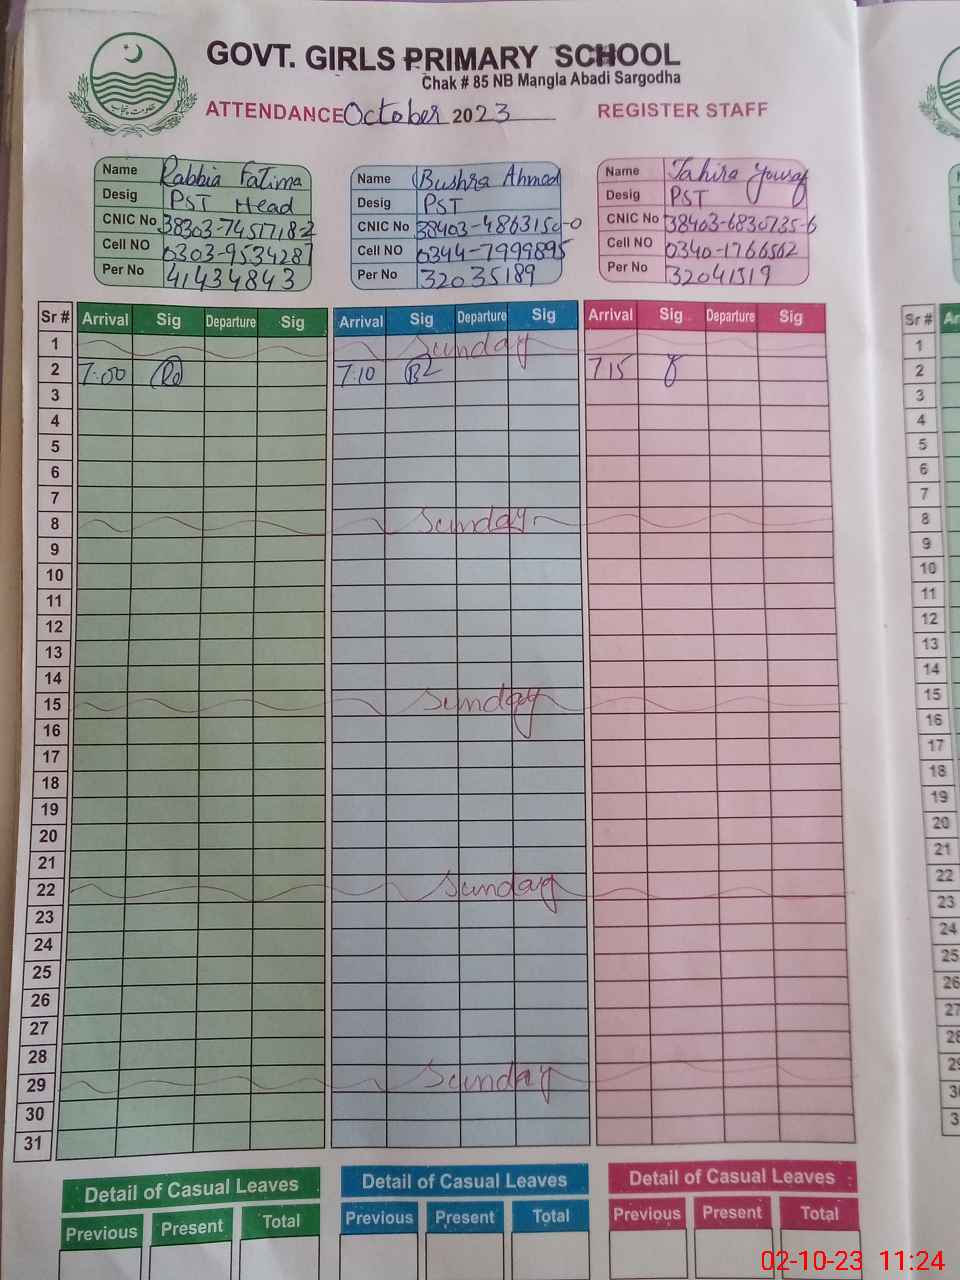 GOVT. GIRLS PRIMARY SCHOOL
Chak # 85 NB Mangla Abadi Sargodha
ATTENDANCE October 2023 REGISTER STAFF
Name Rabbia Fatima
Desig PST Head
CNIC No 38303-7451718-2
Cell NO 0303-9534287
Per No 41434843
Name Bushra Ahmed
Desig PST
CNIC No 38403-4863150-0
Cell NO 0344-7999895
Per No 32035189
Name Tahira Yousaf
Desig PST
CNIC No 38403-6830735-6
Cell NO 0340-1766562
Per No 32041519
Sr # Arrival Sig Departure Sig Arrival Sig Departure Sig Arrival Sig Departure Sig Sr # Ar
1 Sunday 1
2 7:00 7:10 7:15 2
3 3
4 4
5 5
6 6
7 7
8 Sunday 8
9 9
10 10
11 11
12 12
13 13
14 14
15 Sunday 15
16 16
17 17
18 18
19 19
20 20
21 21
22 Sunday 22
23 23
24 24
25 25
26 26
27 27
28 28
29 Sunday 29
30 3
31 3
Detail of Casual Leaves Detail of Casual Leaves Detail of Casual Leaves
Previous Present Total Previous Present Total Previous Present Total
02-10-23 11:24